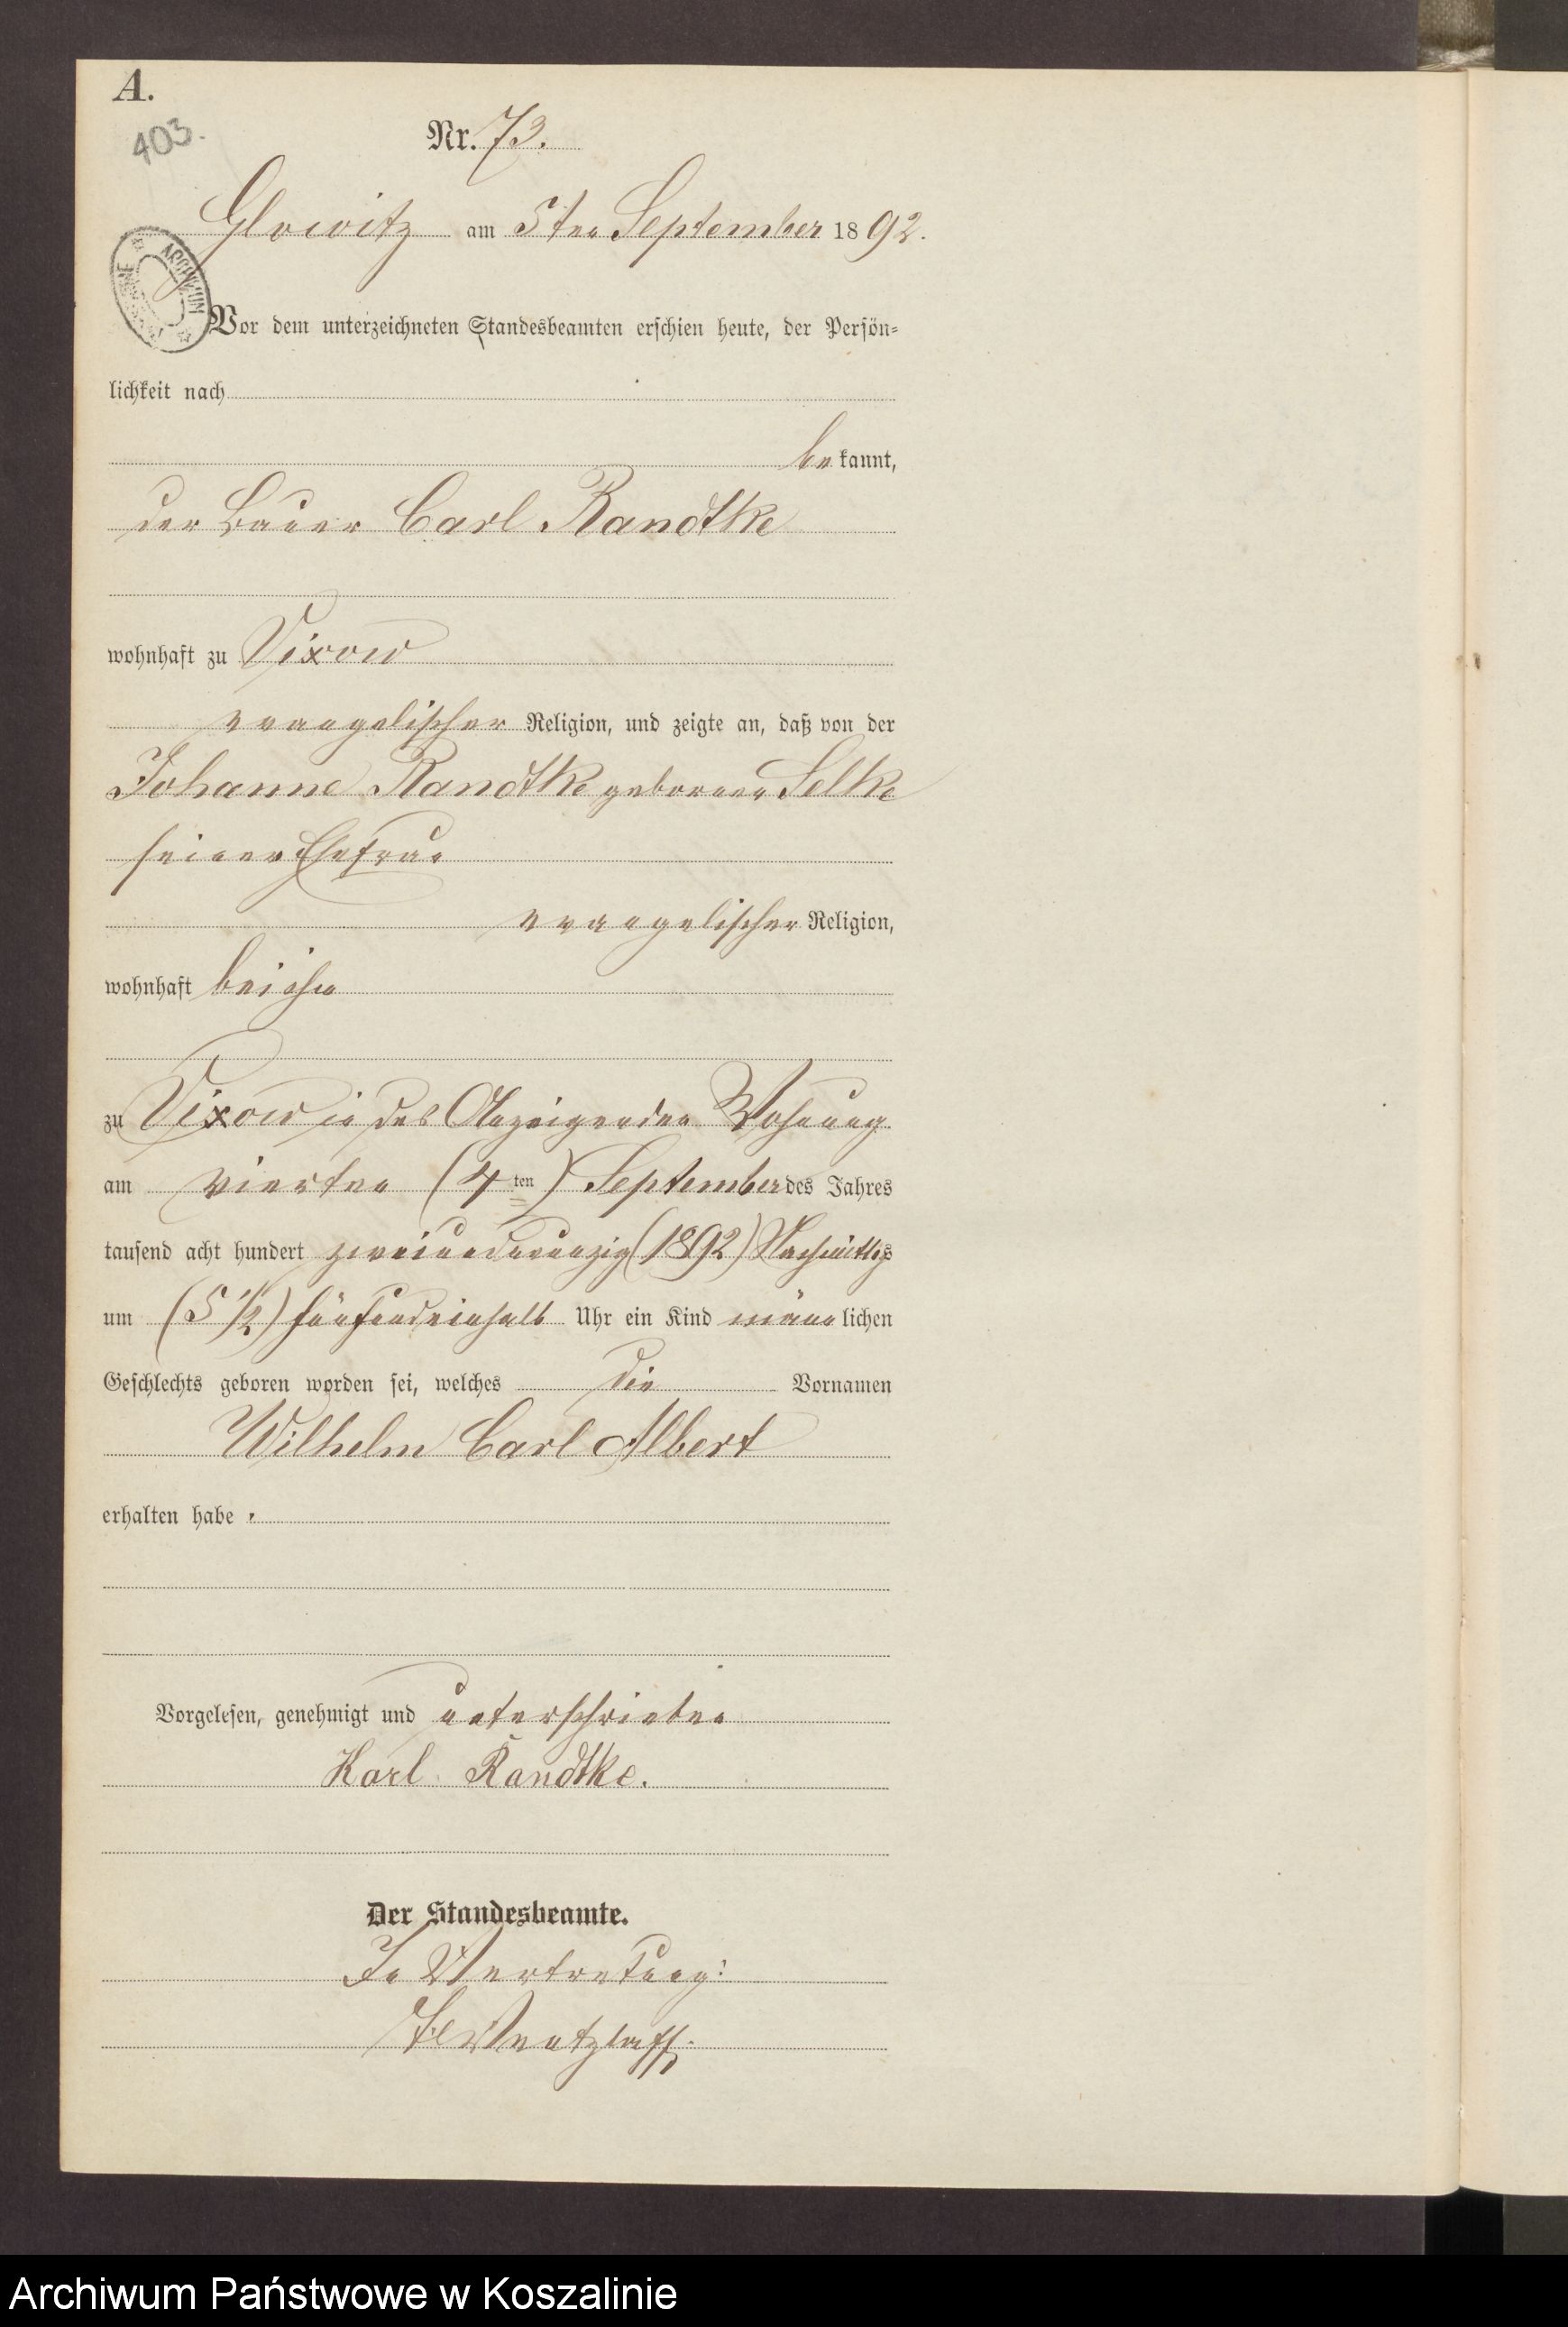 A.
403.
Nr. 73.
Glowitz am 5ten September 1892.
ARCHIWUM
Vor dem unterzeichneten Standesbeamten erschien heute, der Persön-
lichkeit nach
bekannt,
der Bauer Carl Randtke
wohnhaft zu Vixow
evangelischer Religion, und zeigte an, daß von der
Johanne Randtke geborenen Selke
seiner Ehefrau
evangelischer Religion,
wohnhaft bei ihm
zu Vixow in des Anzeigenden Wohnung
am vierten (4ten) September des Jahres
tausend acht hundert zweiundneunzig (1892) Nachmittags
um (5 1/2) fünfundeinhalb Uhr ein Kind männlichen
Geschlechts geboren worden sei, welches die Vornamen
Wilhelm Carl Albert
erhalten habe.
Vorgelesen, genehmigt und unterschrieben
Karl Randtke.
Der Standesbeamte.
In Vertretung:
Wentzlaff.
Archiwum Państwowe w Koszalinie